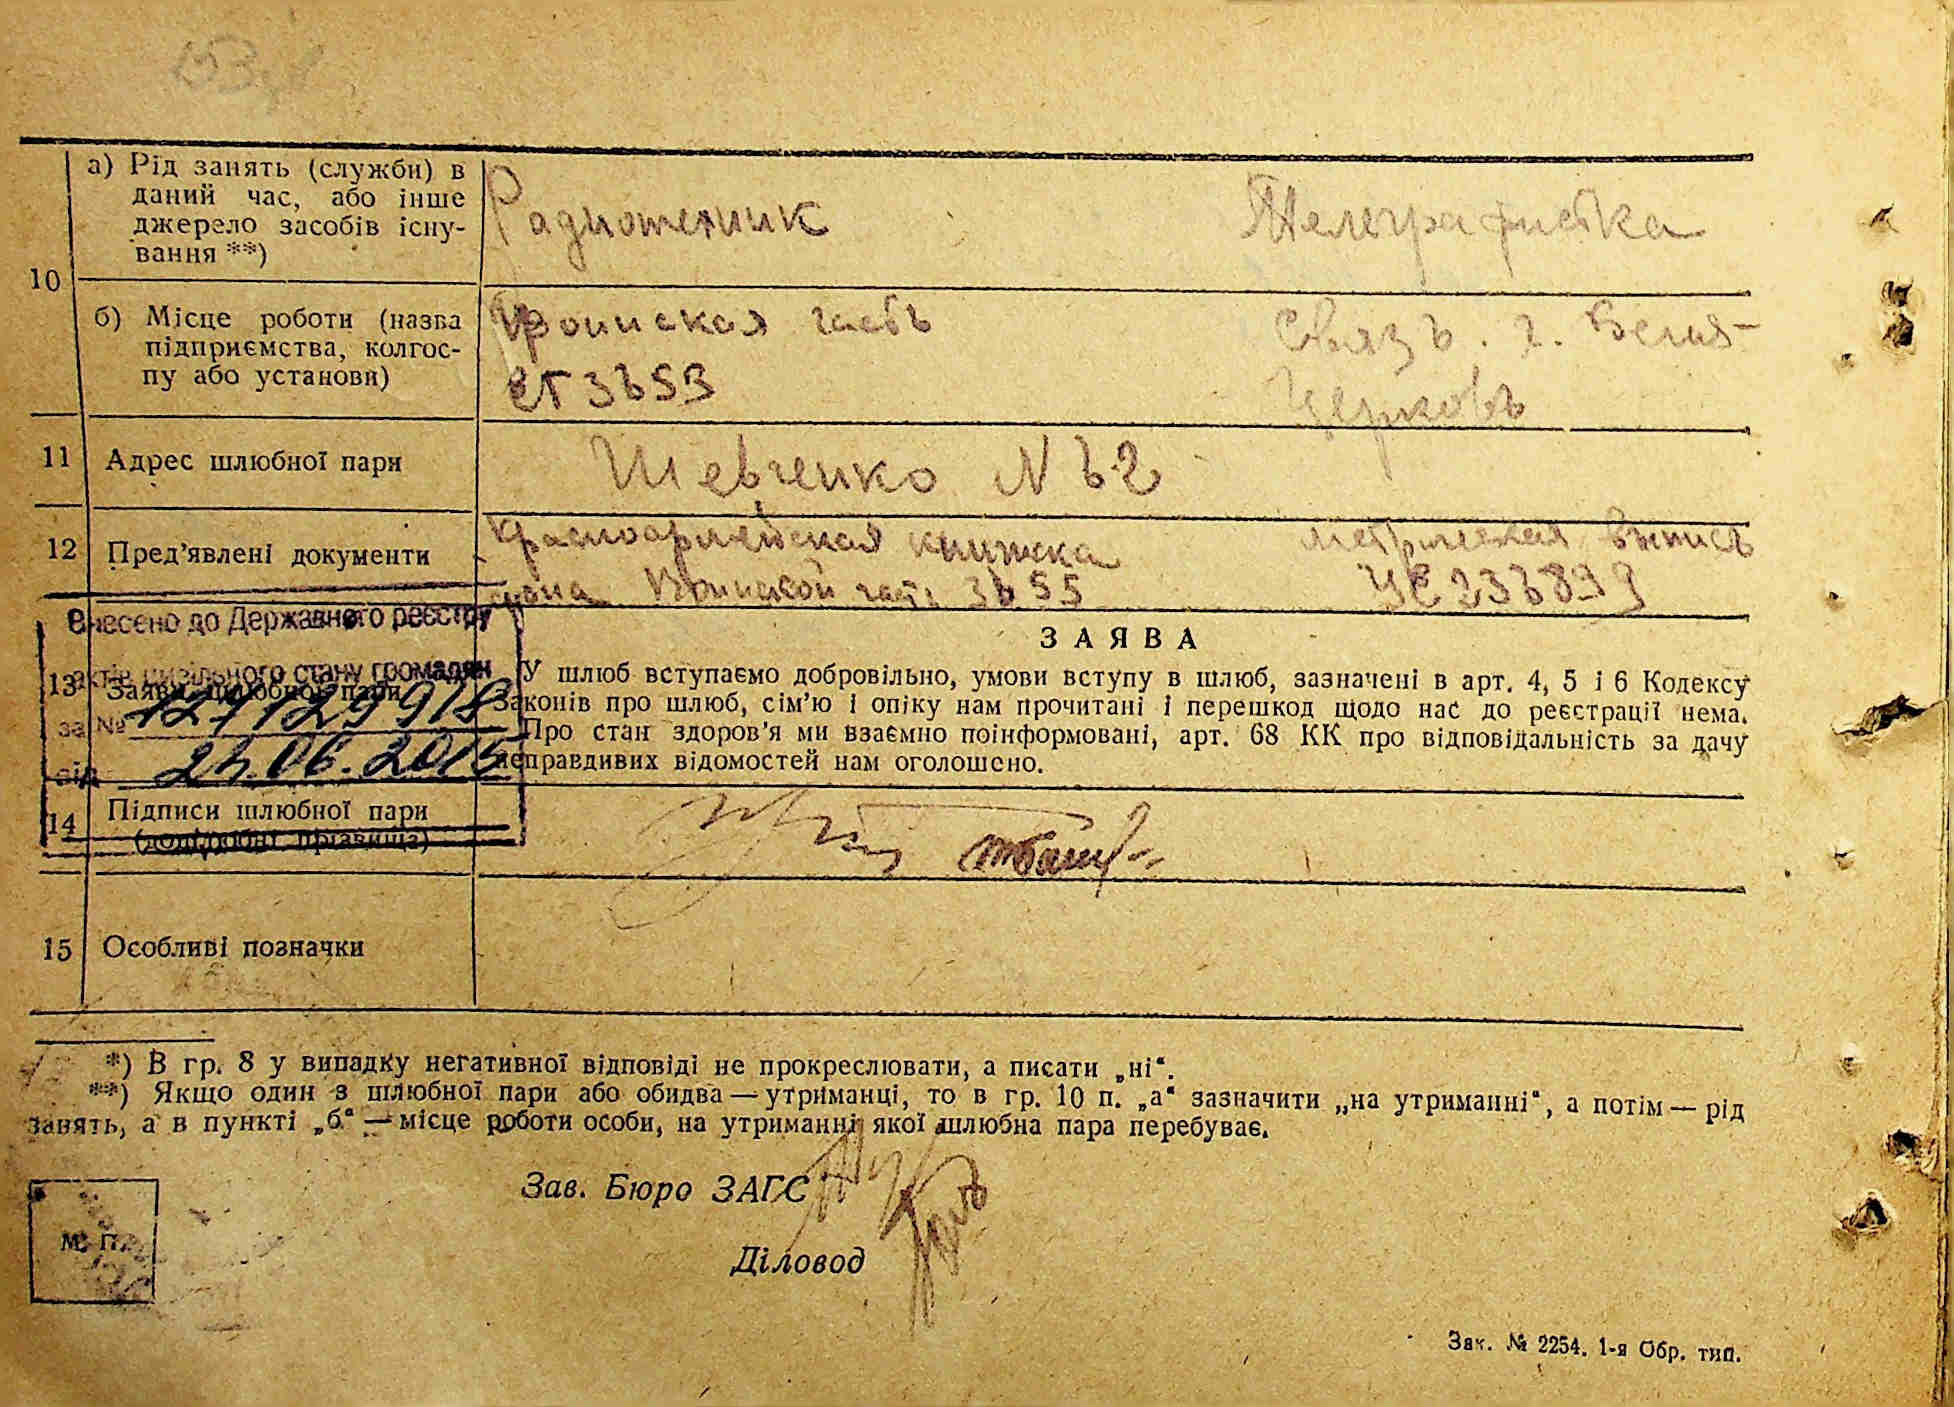 10
а) Рід занять (служби) в
даний час, або інше
джерело засобів існу-
вання **)
Радиотехник
Телеграфистка
б) Місце роботи (назва
підприємства, колгос-
пу або установи)
Воинская часть
Связь. г. Белая-
Церковь
11
Адрес шлюбної пари
Шевченко №
12
Пред’явлені документи
Красноармейская книжка
Воинской
метрическая выпись
Внесено до Державного реєстру
актів цивільного стану громадян
за №
від
13
Заява шлюбної пари
ЗАЯВА
У шлюб вступаємо добровільно, умови вступу в шлюб, зазначені в арт. 4, 5 і 6 Кодексу
Законів про шлюб, сім’ю і опіку нам прочитані і перешкод щодо нас до реєстрації нема.
Про стан здоров’я ми взаємно поінформовані, арт. 68 КК про відповідальність за дачу
неправдивих відомостей нам оголошено.
14
Підписи шлюбної пари
15
Особливі позначки
*) В гр. 8 у випадку негативної відповіді не прокреслювати, а писати „ні“.
**) Якщо один з шлюбної пари або обидва — утриманці, то в гр. 10 п. „а“ зазначити „на утриманні“, а потім — рід
занять, а в пункті „б“ — місце роботи особи, на утриманні якої шлюбна пара перебуває.
Зав. Бюро ЗАГС
Діловод
М. П.
Зак. № 2254. 1-я Обр. тип.